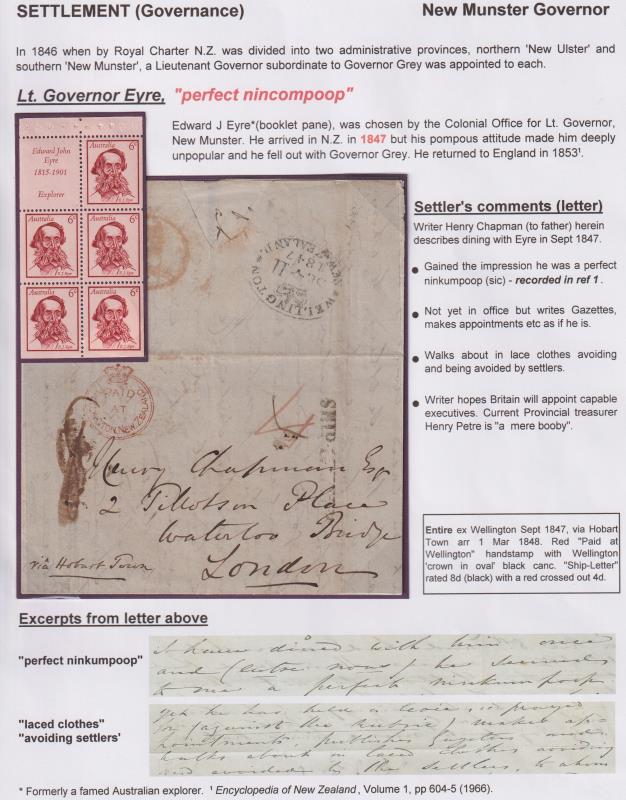 SETTLEMENT (Governance)
New Munster Governor
In 1846 when by Royal Charter N.Z. was divided into two administrative provinces, northern 'New Ulster' and
southern 'New Munster', a Lieutenant Governor subordinate to Governor Grey was appointed to each.
Lt. Governor Eyre, "perfect nincompoop"
Edward J Eyre*(booklet pane), was chosen by the Colonial Office for Lt. Governor,
New Munster. He arrived in N.Z. in 1847 but his pompous attitude made him deeply
unpopular and he fell out with Governor Grey. He returned to England in 1853¹.
Edward John
Eyre
1815-1901
Explorer
Australia 6c
Australia 6c
Australia 6c
Australia 6c
Australia 6c
WELLINGTON
NEW ZEALAND
1847
PAID
AT
SHIP
4
Henry Chapman Esq
2 Tillotson Place
Waterloo Bridge
London
via Hobart Town
Settler's comments (letter)
Writer Henry Chapman (to father) herein
describes dining with Eyre in Sept 1847.
Gained the impression he was a perfect
ninkumpoop (sic) - recorded in ref 1.
Not yet in office but writes Gazettes,
makes appointments etc as if he is.
Walks about in lace clothes avoiding
and being avoided by settlers.
Writer hopes Britain will appoint capable
executives. Current Provincial treasurer
Henry Petre is "a mere booby".
Entire ex Wellington Sept 1847, via Hobart
Town arr 1 Mar 1848. Red "Paid at
Wellington" handstamp with Wellington
'crown in oval' black canc. "Ship-Letter"
rated 8d (black) with a red crossed out 4d.
Excerpts from letter above
"perfect ninkumpoop"
I have dined with him once
and (entre nous) he seemed
to me a perfect ninkumpoop
"laced clothes"
"avoiding settlers'
yet he has held a levee,
(against the                ) makes ap-
pointments, publishes                and
walks about in laced clothes avoiding
and avoided by the settlers, to whom
* Formerly a famed Australian explorer. ¹ Encyclopedia of New Zealand, Volume 1, pp 604-5 (1966).